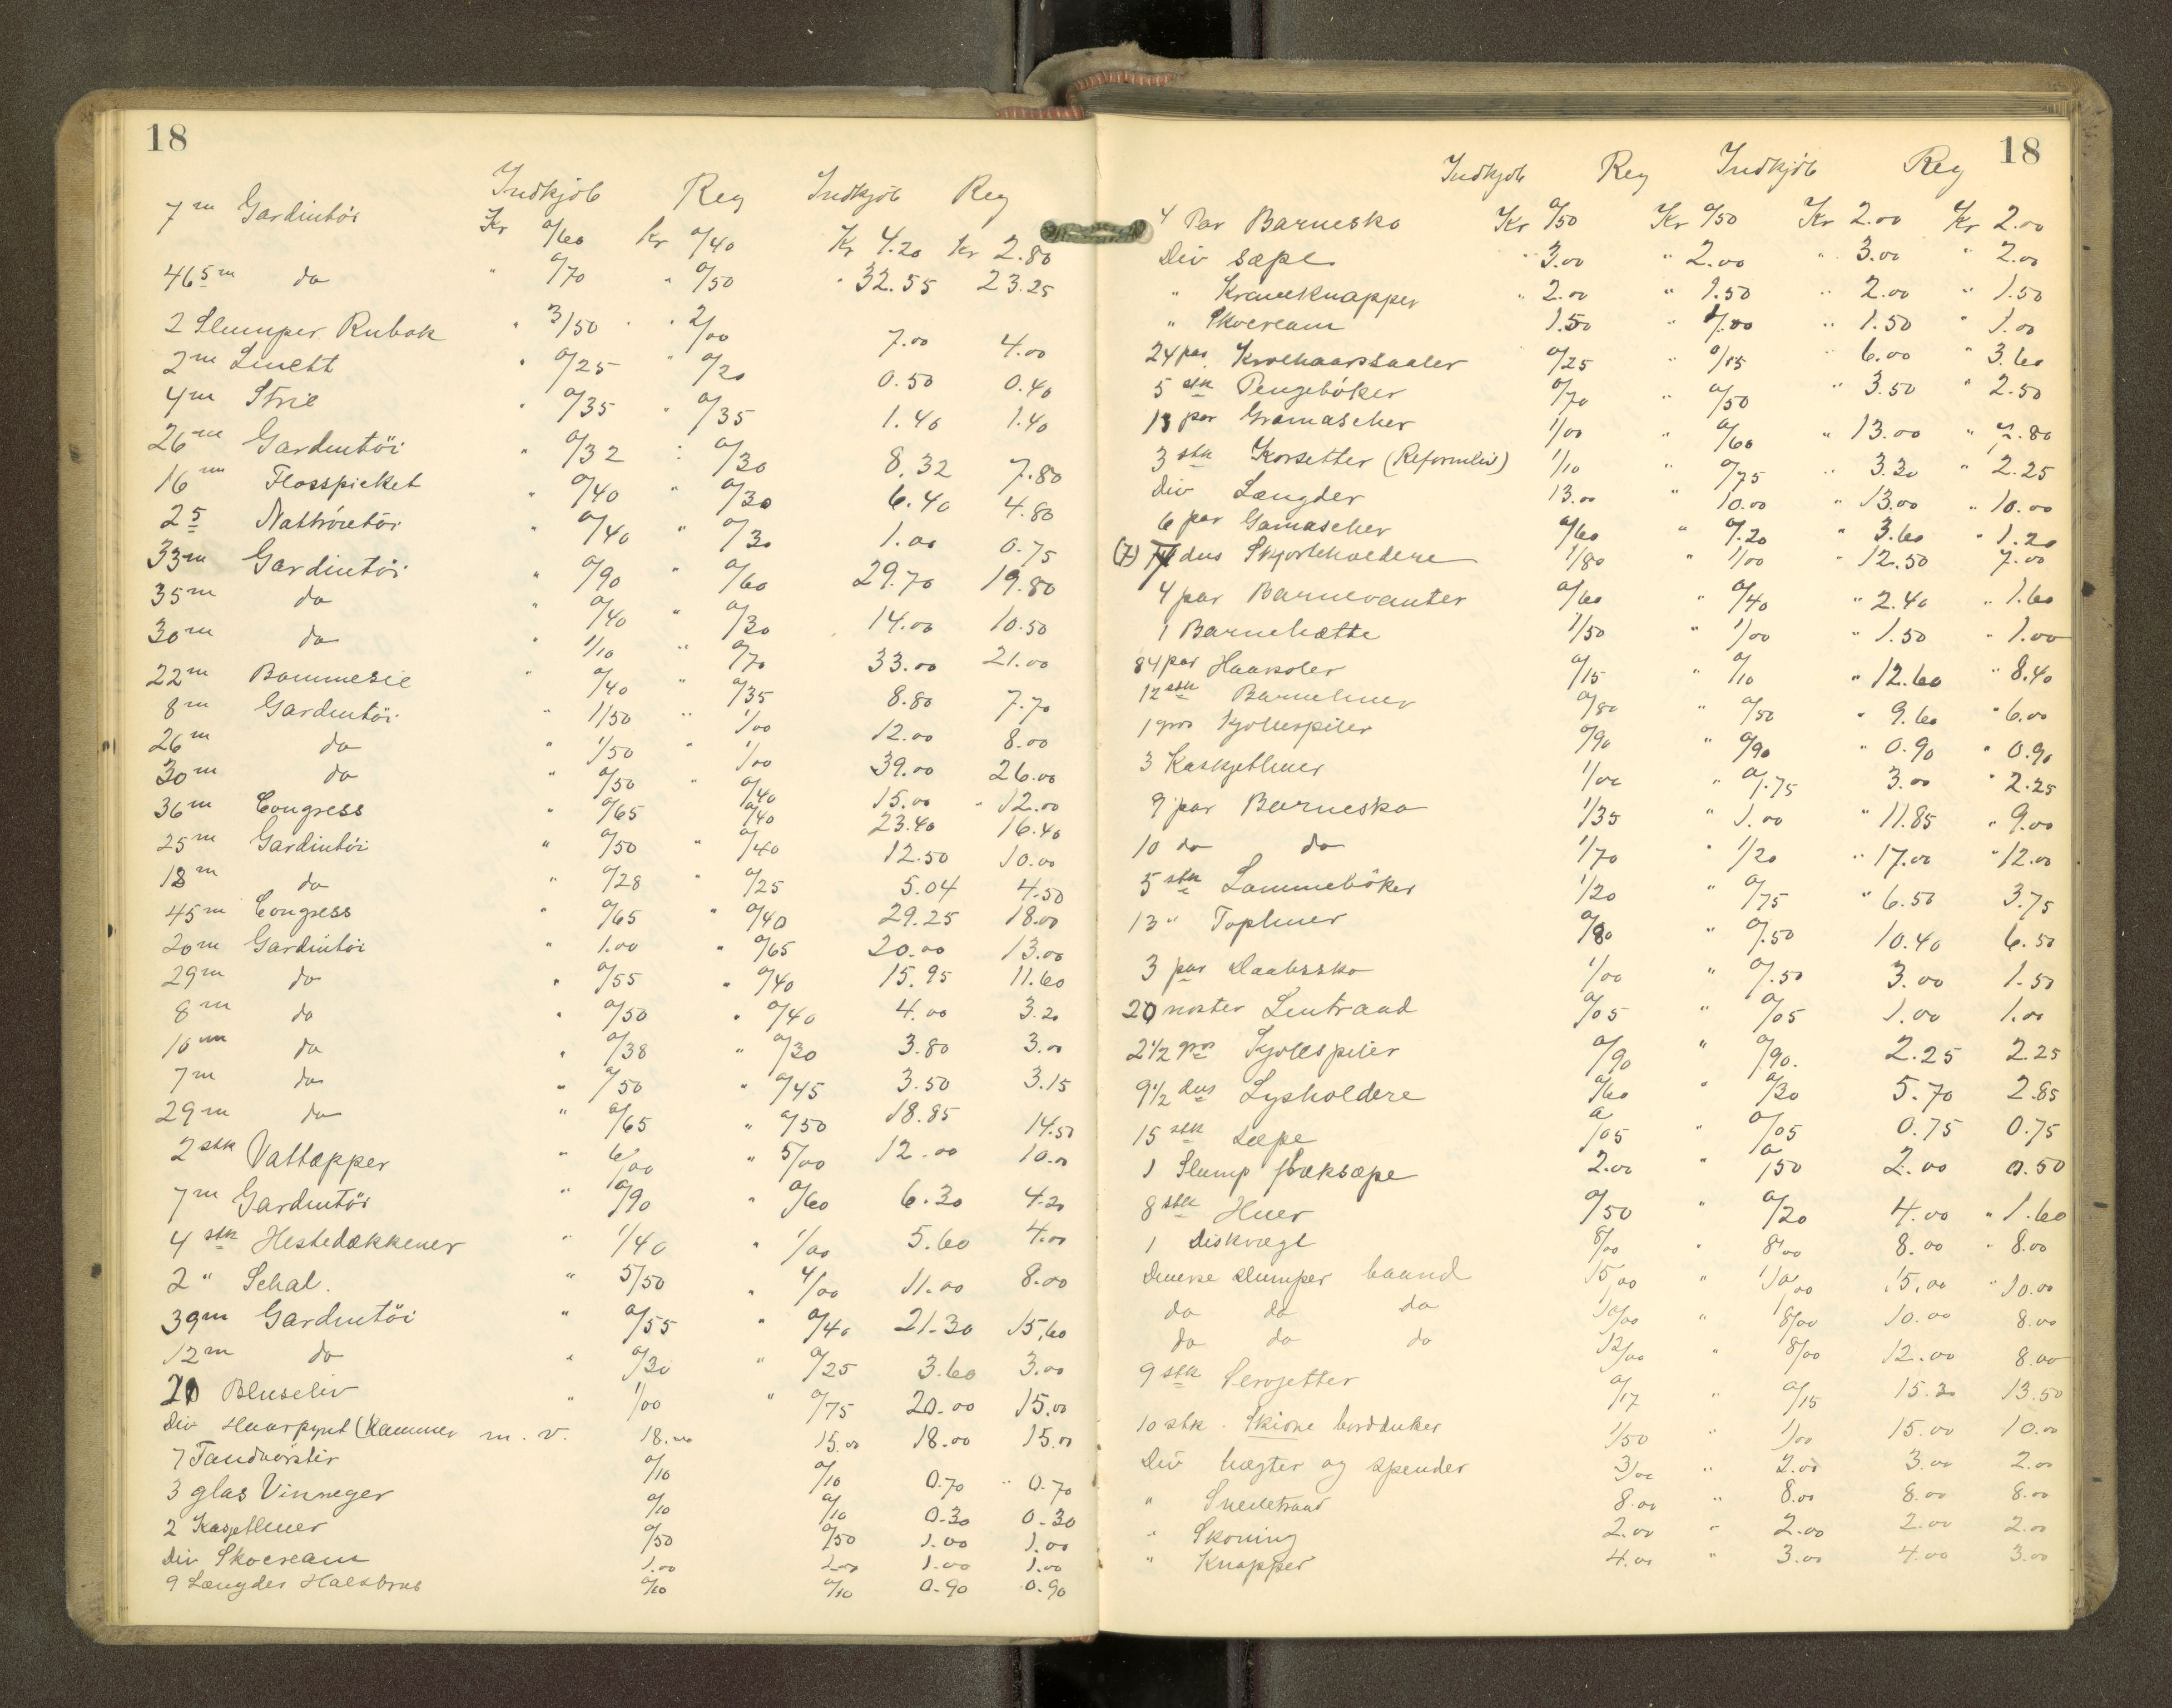 18
Indkjöb Reg Indkjöb Reg
7 m Gardintöi Kr 0/60 Kr 0/40 Kr 4.20 Kr 2.80
46 5 m do " 0/70 " 0/50 " 32.55 23.25
2 Slumper Rubok " 3/50 " 2/00 7.00 4.00
2 m " 0/25 " 0/20 0.50 0.40
4 m Strie " 0/35 " 0/35 1.40 1.40
26 m Gardintöi " 0/32 : 0/30 8.32 7.80
16 m Flosspicket " 0/40 " 0/30 6.40 4.80
2 5 " 0/40 " 0/30 1.00 0.75
33 m Gardintöi " 0/90 " 0/60 29.70 19.80
35 m do " 0/40 " 0/30 14.00 10.50
30 m do " 1/10 " 0/70 33.00 21.00
22 m Bommesie " 0/40 " 0/35 8.80 7.70
8 m Gardintöi " 1/50 " 1/00 12.00 8.00
26 m do " 1/50 " 1/00 39.00 26.00
30 m do " 0/50 " 0/40 15.00 " 12.00
36 m Congress " 0/65 0/40 23.40 16.40
25 m Gardintöi " 0/50 " 0/40 12.50 10.00
18 m do " 0/28 " 0/25 5.04 4.50
45 m Congress " 0/65 " 0/40 29.25 18.00
20 m Gardintöi " 1.00 " 0/65 20.00 13.00
29 m do " 0/55 " 0/40 15.95 11.60
8 m do " 0/50 " 0/40 4.00 3.20
10 m do " 0/38 " 0/30 3.80 3.00
7 m do " 0/50 " 0/45 3.50 3.15
29 m do " 0/65 " 0/50 18.85 14.50
2 stk Vattæpper " 6/00 " 5/00 12.00 10.00
7 m Gardintöi " 0/90 " 0/60 6.30 4.20
4 stk Hestedækkener " 1/40 " 1/00 5.60 4.00
2 " Schal. " 5/50 " 4/00 11.00 8.00
39 m Gardintöi " 0/55 " 0/40 21.30 15,60
12 m do " 0/30 " 0/25 3.60 3.00
20 Bluseliv " 1/00 " 0/75 20.00 15.00
Div Haarpynt (Kammer m.v. 18.00 15.00 18.00 15.00
7 Tandbörster 0/10 0/10 0.70 " 0.70
3 glas Vinneger 0/10 0/10 0.30 0.30
2 Kasjethuer 0/50 0/50 1.00 1.00
Div Skocream 1.00 1.00 1.00 1.00
9 Længder 0/10 0/10 0.90 0.90
18
Indkjöb Reg Indkjöb Reg
4 Par Barnesko Kr 0/50 Kr 0/50 Kr 2.00 Kr 2.00
Div sæpe " 3.00 " 2.00 " 3.00 " 2.00
" Kraveknapper " 2.00 " 1.50 " 2.00 " 1.50
" Skocream 1.50 " 1.00 " 1.50 " 1.00
24 par Krølhaarssaaler 0/25 " 0/15 " 6.00 " 3.60
5 stk Pengebøker 0/70 " 0/50 " 3.50 " 2.50
13 par Gramascher 1/00 " 0/60 " 13.00 " 7.80
3 stk Korsetter (Reformliv) 1/10 " 0/75 " 3.30 " 2.25
Div Længder 13.00 " 10.00 " 13.00 " 10.00
6 par Gamascher 0/60 " 0/.20 " 3.60 " 1.20
(7) dus Skjorteholdere 1/80 " 1/00 " 12.50 7.00
4 par Barnevanter 0/60 " 0/40 " 2.40 " 1.60
1 Barnehætte 1/50 " 1/00 " 1.50 " 1.00
84 par Haarsoler 0/15 " 0/10 " 12.60 " 8.40
12 stk Barnehuer 0/80 " 0/50 " 9.60 " 6.00
1 gros Kjolespiler 0/90 " 0/90 " 0.90 " 0.90
3 Kaskjethuer 1/00 " 0/.75 3.00 " 2.25
9 par Barnesko 1/35 " 1.00 " 11.85 " 9.00
10 do do 1/70 " 1/20 " 17.00 " 12.00
5 stk Lommebøker 1/20 " 0/75 " 6.50 3.75
13 " Tophuer 0/80 " 0/.50 10.40 6.50
3 par Daabssko 1/00 " 0/.50 3.00 1.50
20 noster Lintraad 0/05 " 0/05 1.00 1.00
2 1/2 gros Kjolespiler 0/90 " 0/90. 2.25 2.25
9 1/2 dus Lysholdere 0/60 " 0/30 5.70 2.85
15 stk sæpe 0/05 " 0/05 0.75 0.75
1 Slump 2.00 " 0/50 2.00 0.50
8 stk Huer 0/50 " 0/20 4.00 " 1.60
1 Diskvægt 8/00 " 8/00 8.00 " 8.00
Diverse slumper baand 15/00 " 10/00 15.00 " 10.00
do do do 10/00 " 8/00 10.00 8.00
do do do 12/00 " 8/00 12.00 8.00
9 stk Servjetter 0/17 " 0/15 15.30 13.50
10 stk . Skione bordduker 1/50 " 1/00 15.00 10.00
Div hægter og spender 3/00 " 2.00 3.00 2.00
" 8.00 " 8.00 8.00 8.00
" Skoning 2.00 " 2.00 2.00 2.00
" Knapper 4.00 " 3.00 4.00 3.00